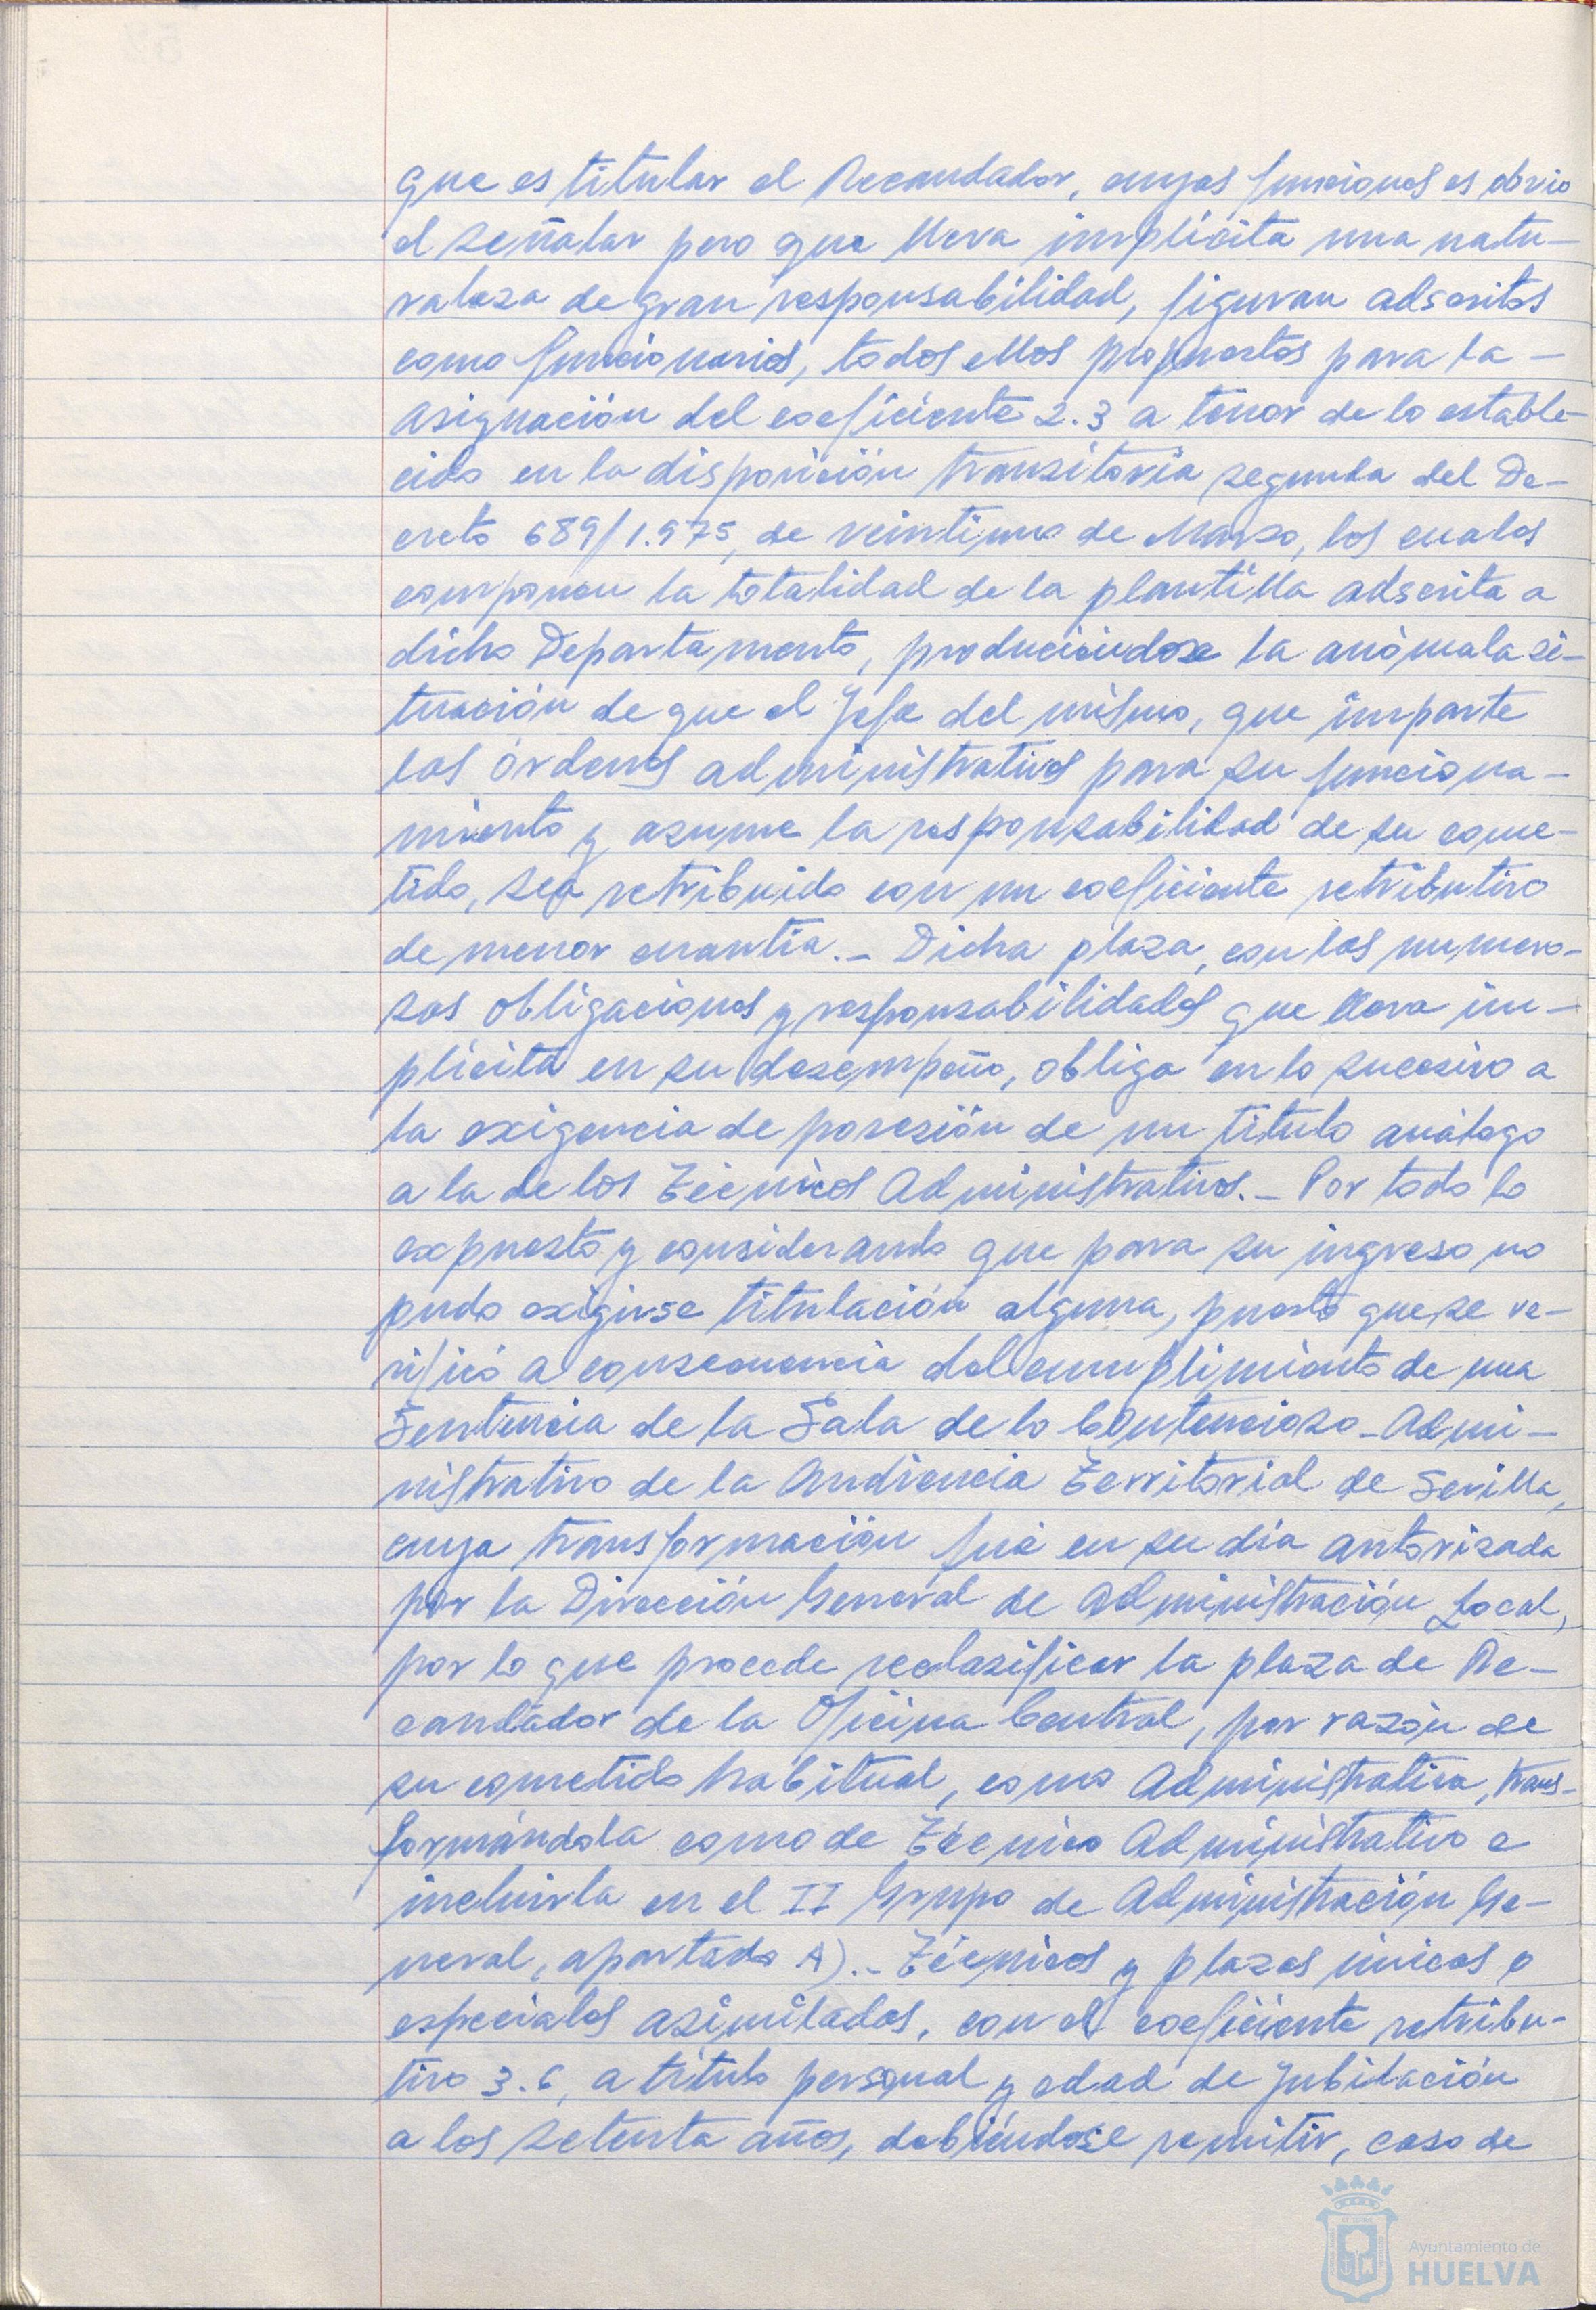 que es titular el Recaudador, cuyas funciones es obvio
el señalar pero que lleva implícita una natu-
raleza de gran responsabilidad, figuran adscritos
como funcionarios, todos ellos propuestos para la -
asignación del coeficiente 2.3 a tenor de lo estable-
cido en la disposición transitoria segunda del De-
creto 689/1.975, de veintiuno de Marzo, los cuales
componen la totalidad de la plantilla adscrita a
dicho Departamento, produciéndose la anómala si-
tuación de que el Jefe del mismo, que imparte
las órdenes administrativas para su funciona-
miento y asume la responsabilidad de su come-
tido, sea retribuido con un coeficiente retributivo
de menor cuantía.- Dicha plaza, con las numero-
sas obligaciones y responsabilidades que lleva im-
plícita en su desempeño, obliga en lo sucesivo a
la exigencia de posesión de un título análogo
a la de los Técnicos Administrativos.- Por todo lo
expuesto y considerando que para su ingreso no
pudo exigirse titulación alguna, puesto que se ve-
rificó a consecuencia del cumplimiento de una
Sentencia de la Sala de lo Contencioso-Admi-
nistrativo de la Audiencia Territorial de Sevilla,
cuya transformación fué en su día autorizada
por la Dirección General de Administración Local,
por lo que procede reclasificar la plaza de Re-
caudador de la Oficina Central, por razón de
su cometido habitual, como Administrativa, trans-
formándola como de Técnico Administrativo e
incluirla en el II Grupo de Administración Ge-
neral, apartado A).- Técnicos y plazas únicas o
especiales asimilados, con el coeficiente retribu-
tivo 3.6, a título personal y edad de jubilación
a los setenta años, debiéndose remitir, caso de
Ayuntamiento de
HUELVA